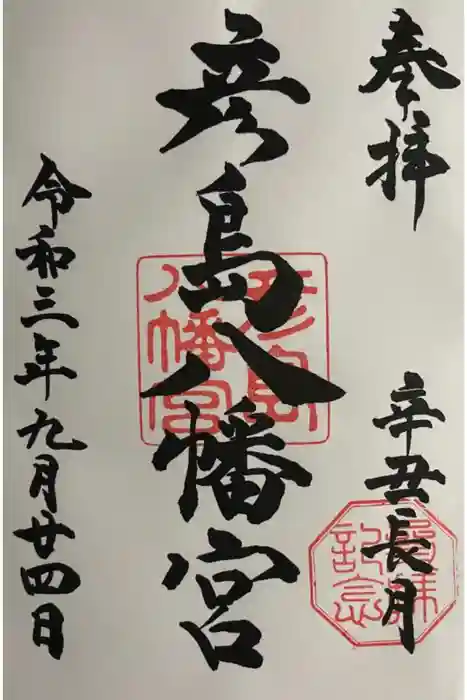 奉拝
辛丑長月
参拝記念
彦島八幡宮
彦島八幡宮
令和三年九月廿四日